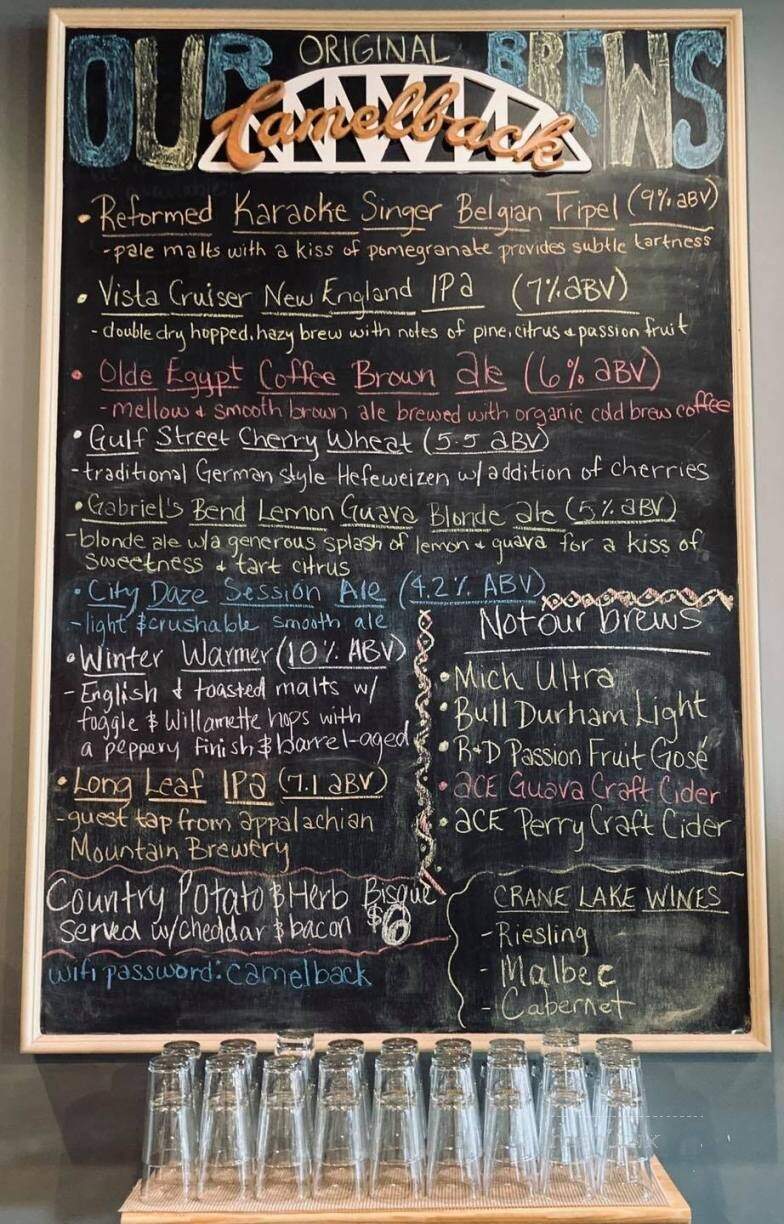 OUR ORIGINAL BREWS
Camelback
• Reformed Karaoke Singer Belgian Tripel (9% ABV)
- pale malts with a kiss of pomegranate provides subtle tartness
• Vista Cruiser New England IPA (7% ABV)
- double dry hopped, hazy brew with notes of pine, citrus & passion fruit
• Olde Egypt Coffee Brown ale (6% ABV)
- mellow & smooth brown ale brewed with organic cold brew coffee
• Gulf Street Cherry Wheat (5.5 ABV)
- traditional German style Hefeweizen w/ addition of cherries
• Gabriel's Bend Lemon Guava Blonde ale (5% ABV)
- blonde ale w/a generous splash of lemon & guava for a kiss of
sweetness & tart citrus
• City Daze Session Ale (4.2% ABV)
- light & crushable smooth ale
• Winter Warmer (10% ABV)
- English & toasted malts w/
foggle & Willamette hops with
a peppery finish & barrel-aged
• Long Leaf IPA (7.1 ABV)
- guest tap from appalachian
Mountain Brewery
Not our brews
• Mich Ultra
• Bull Durham Light
• R&D Passion Fruit Gosé
• ACE Guava Craft Cider
• ACE Perry Craft Cider
Country Potato & Herb Bisque
served w/cheddar & bacon $6
wifi password: camelback
CRANE LAKE WINES
- Riesling
- Malbec
- Cabernet